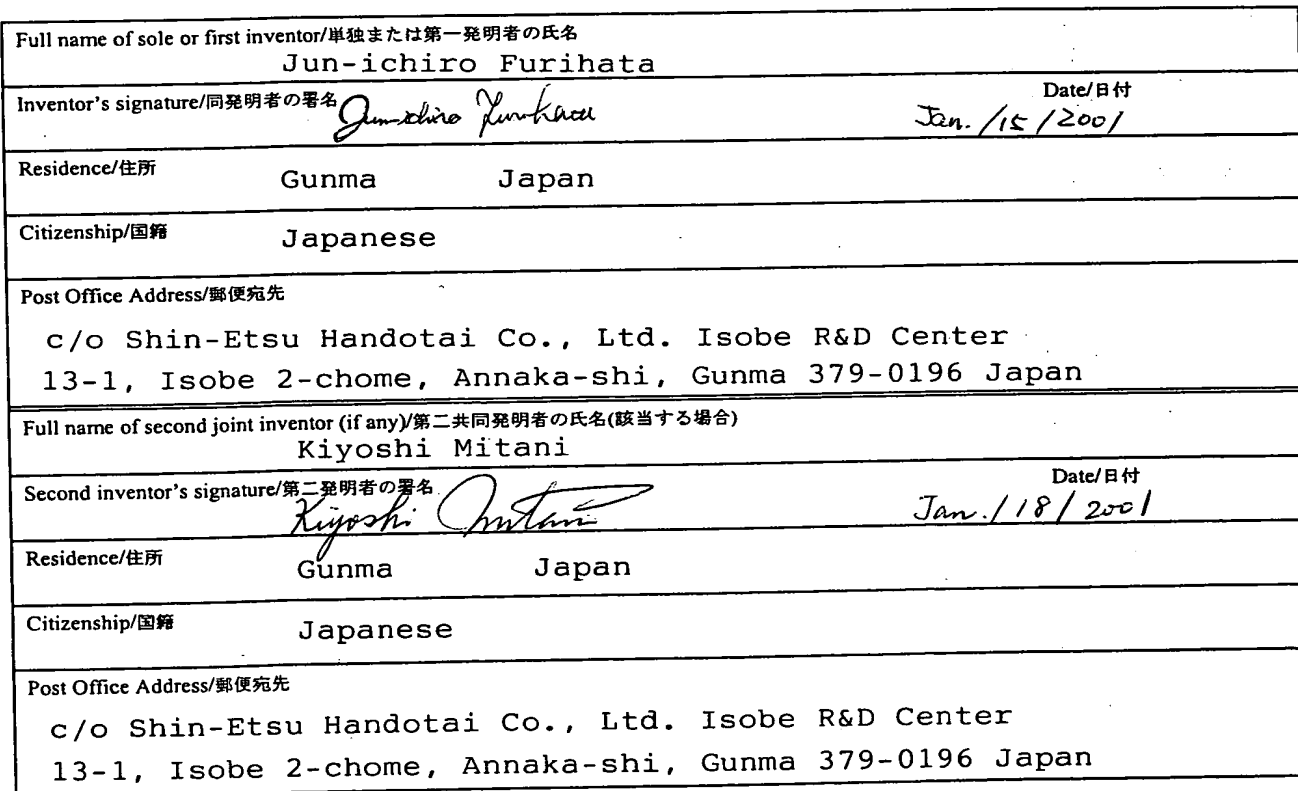 Full name of sole or first inventor/単独または第一発明者の氏名
Jun-ichiro Furihata
Inventor's signature/同発明者の署名 Jun-ichiro Furihata
Date/日付
Jan. /15 /2001
Residence/住所 Gunma Japan
Citizenship/国籍 Japanese
Post Office Address/郵便宛先
c/o Shin-Etsu Handotai Co., Ltd. Isobe R&D Center
13-1, Isobe 2-chome, Annaka-shi, Gunma 379-0196 Japan
Full name of second joint inventor (if any)/第二共同発明者の氏名(該当する場合)
Kiyoshi Mitani
Second inventor's signature/第二発明者の署名 Kiyoshi Mitani
Date/日付
Jan. /18/ 2001
Residence/住所 Gunma Japan
Citizenship/国籍 Japanese
Post Office Address/郵便宛先
c/o Shin-Etsu Handotai Co., Ltd. Isobe R&D Center
13-1, Isobe 2-chome, Annaka-shi, Gunma 379-0196 Japan